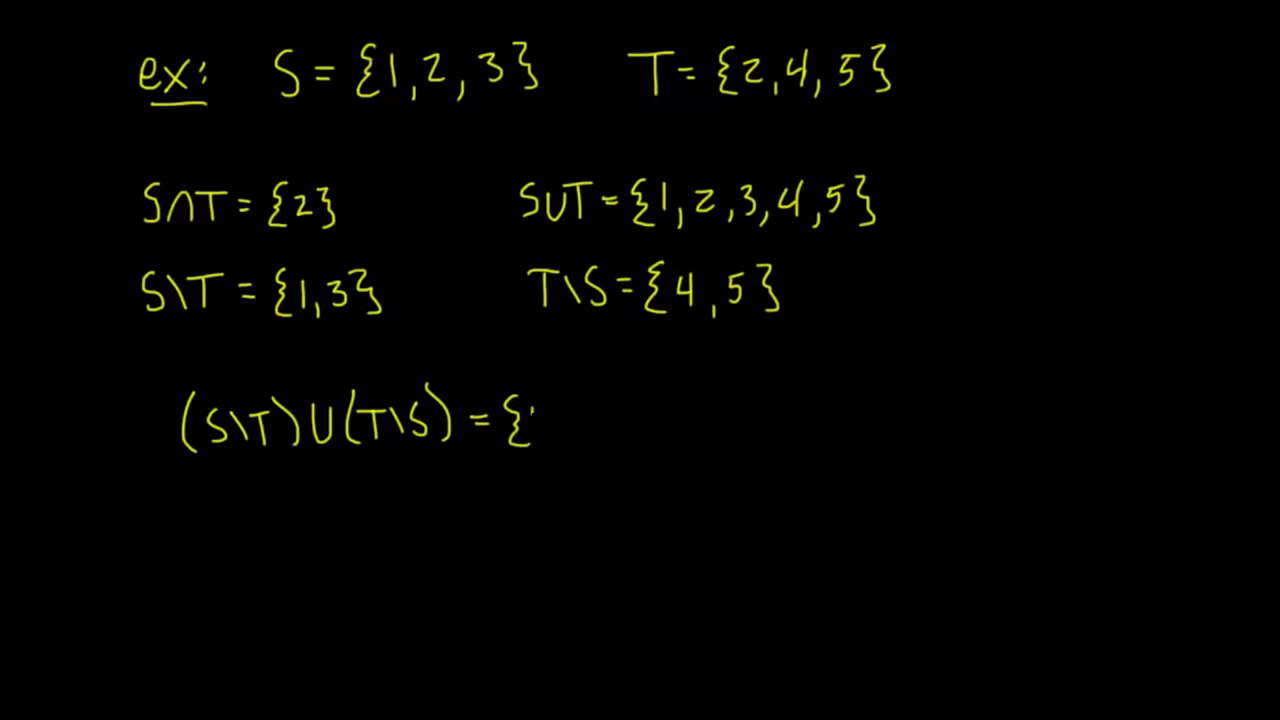 ex: S = {1, 2, 3} T = {2, 4, 5}
S∩T = {2} S∪T = {1, 2, 3, 4, 5}
S\T = {1, 3} T\S = {4, 5}
(S\T)∪(T\S) = {